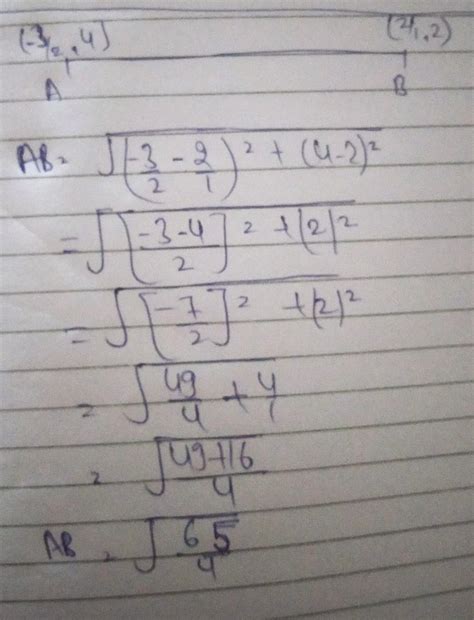 (-3/2, 4) (2/1, 2)
A B
AB = √(-3/2 - 2/1)² + (4-2)²
= √[-3-4/2]² + (2)²
= √[-7/2]² + (2)²
= √49/4 + 4/1
= √49+16/4
AB = √65/4